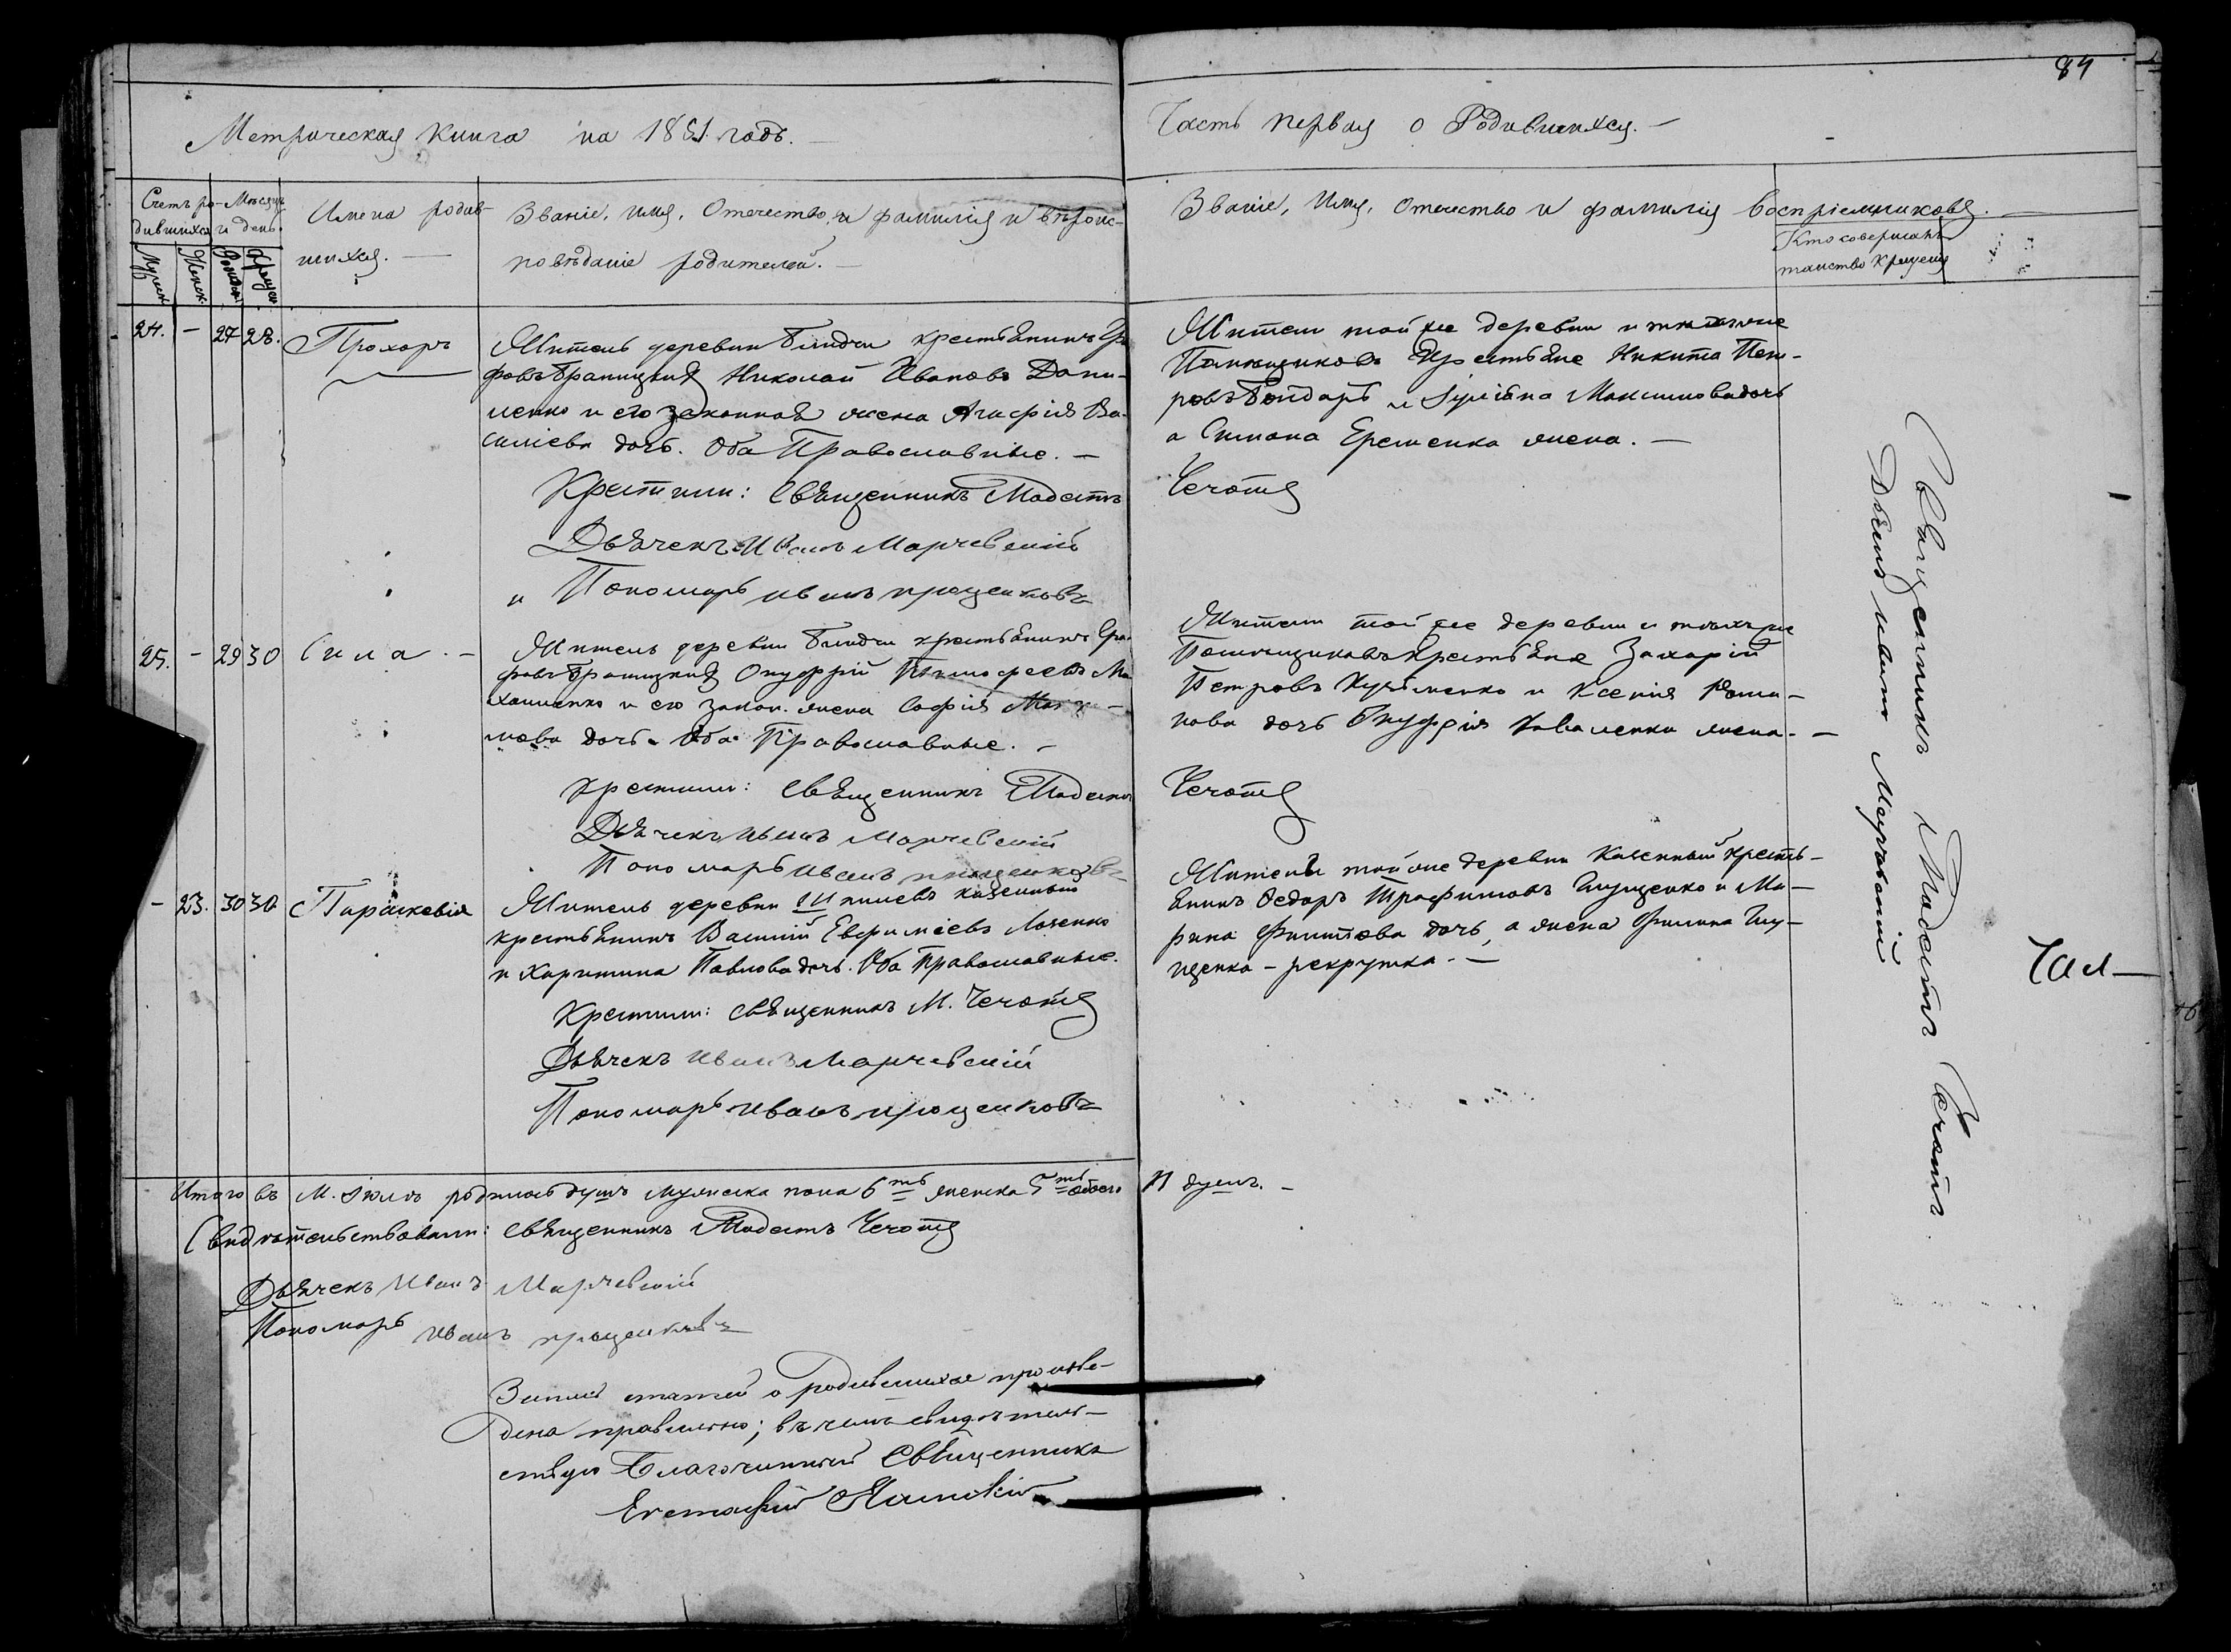 84
Метрическая Книга на 1851 годъ.
Часть первая о Родившихся.
Счетъ ро- Мѣсяцъ
дившихся и день.
Мужск. Женск. Рожден. Крещен.
Имена родив-
шихся.
Званіе, имя, Отечество, и фамилія и вѣроис-
повѣданіе родителей.
Званіе, Имя, Отечество и фамилія воспріемниковъ.
Кто совершалъ
таинство крещенія
24. - 27 28. Прохоръ
Житель деревни крестьянинъ Гра
фовъ Браницкихъ Николай Ивановъ Дани-
ленко и его законная жена Агафія Ва-
силіева дочь. Оба Православные. -
Крестили: Священникъ Модестъ Чечотъ
Дьячекъ Иванъ Марчевскій
и Пономарь иванъ проценковъ
Жители той же деревни и тѣхъ же
Помѣщиковъ Крестьяне Никита Пет-
ровъ Бондарь и Максимова дочь
а Симона Еременка жена. -
25. - 29 30 Сила. -
Житель деревни крестьянинъ Гра
фовъ Браницкихъ Онуфрій Тимофеевъ Ми
хайленко и его закон. жена Софія
мова дочь. Оба Православные. -
крестили: Священникъ Модестъ Чечотъ
Дьячекъ иванъ Марчевскій
Пономарь иванъ проценковъ
Жители той же деревни и тѣхъ же
Помѣщиковъ крестьяне Захарій
Петровъ и Ксенія Рома-
нова дочь Онуфрія Коваленка жена. -
- 23. 30 30 Параскевія
Житель деревни казенный
крестьянинъ Василій Евфиміевъ
и Харитина Павлова дочь. Оба Православные.
Крестили: священникъ М. Чечотъ
Дьячекъ иванъ Марчевскій
Пономарь иванъ проценковъ
Жители той же деревни Казенный кресть-
янинъ Федоръ Трофимовъ Глущенко и Ма-
рина Филипова дочь, а жена Филипа Глу-
щенка - рекрутка. -
Священникъ Модестъ Чечотъ
Дьячекъ иванъ Марчевскій
Итого въ М. Іюлѣ родилось душъ мужеска пола 6ть женска 5ть обоего 11 душъ. -
Свидѣтельствовали: священникъ Модестъ Чечотъ
Дьячекъ Иванъ Марчевскій
Пономарь иванъ проценковъ
Запись статей о родившихся произве-
дена правильно; въ чемъ свидѣтель-
ствую Благочинный Священникъ
Евстафій